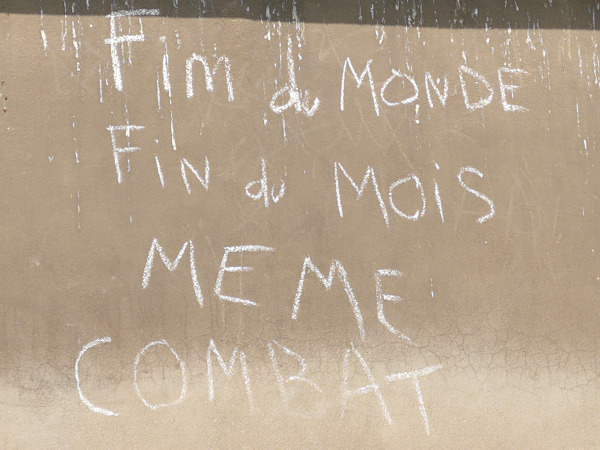 Fim du MONDE
FiN du MOiS
MEME
COMBAT